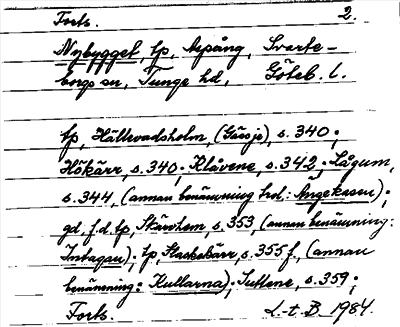 Forts. 2.
Nybygget, tp, Aspång, Svarte-
borgs sn, Tunge hd, Göteb. l.
tp, Hällevadsholm, (Gåsoje), s. 340;
Hökärr, s. 340; Klåvene, s. 342; Lågum,
s. 344, (annan benämning hos: Ängekasen);
gd, f.d. tp, Skärvhem, s. 353, (annan benämning:
Intagan); tp, Stackekärr, s. 355 f., (annan
benämning: Kullarna); Suttene, s. 359;
Forts. L-t B. 1984.